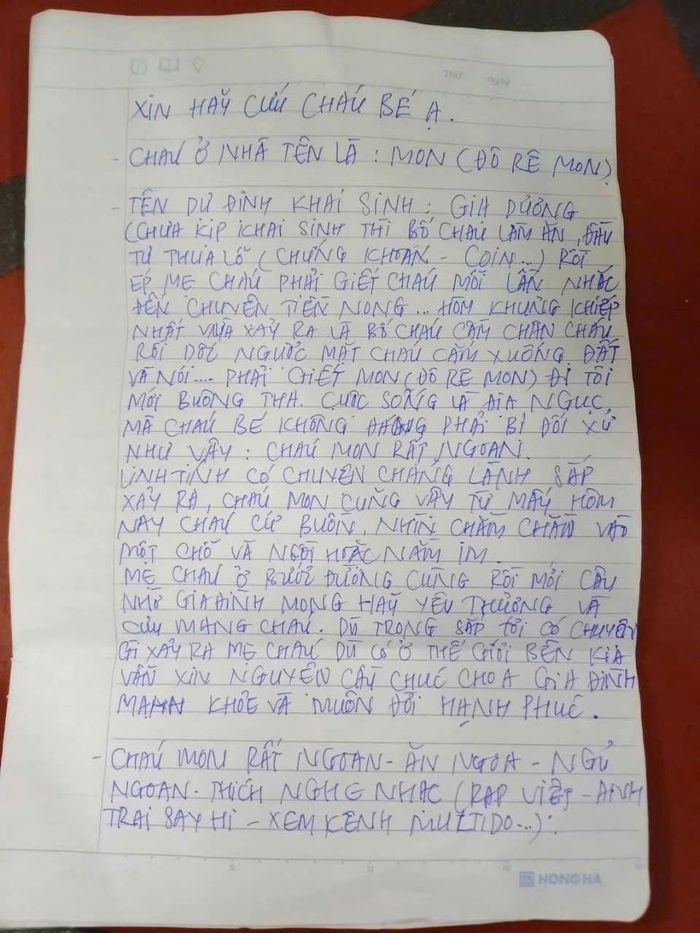 THỨ NGÀY
XIN HÃY CỨU CHÁU BÉ Ạ.
- CHÁU Ở NHÀ TÊN LÀ: MON (ĐÔ RÊ MON)
- TÊN DỰ ĐỊNH KHAI SINH: GIA DƯƠNG
(CHƯA KỊP KHAI SINH THÌ BỐ CHÁU LÀM ĂN, ĐẦU
TƯ THUA LỖ (CHỨNG KHOÁN - COIN...) RỒI
ÉP MẸ CHÁU PHẢI GIẾT CHÁU MỖI LẦN NHẮC
ĐẾN CHUYỆN TIỀN NONG... HÔM KHỦNG KHIẾP
NHẤT VỪA XẢY RA LÀ BỐ CHÁU CẦM CHÂN CHÁU
RỒI DỐC NGƯỢC MẶT CHÁU CẮM XUỐNG ĐẤT
VÀ NÓI.... PHẢI GIẾT MON (ĐÔ RÊ MON) ĐI TÔI
MỚI BUÔNG THA. CUỘC SỐNG LÀ ĐỊA NGỤC
MÀ CHÁU BÉ KHÔNG ĐÁNG PHẢI BỊ ĐỐI XỬ
NHƯ VẬY: CHÁU MON RẤT NGOAN.
LINH TÍNH CÓ CHUYỆN CHẲNG LÀNH SẮP
XẢY RA, CHÁU MON CŨNG VẬY TỪ MẤY HÔM
NAY CHÁU CỨ BUỒN, NHÌN CHẰM CHẰM VÀO
MỘT CHỖ VÀ NGỒI HOẶC NẰM IM.
MẸ CHÁU Ở BƯỚC ĐƯỜNG CÙNG RỒI MỚI CẦU
NHỜ GIA ĐÌNH MONG HÃY YÊU THƯƠNG VÀ
CƯU MANG CHÁU. DÙ TRONG SẮP TỚI CÓ CHUYỆN
GÌ XẢY RA MẸ CHÁU DÙ CÓ Ở THẾ GIỚI BÊN KIA
VẪN XIN NGUYỆN CẦU CHÚC CHO GIA ĐÌNH
MẠNH KHỎE VÀ MUÔN ĐỜI HẠNH PHÚC.
- CHÁU MON RẤT NGOAN - ĂN NGOA - NGỦ
NGOAN - THÍCH NGHE NHẠC (RAP VIỆT - ANH
TRAI SAY HI - XEM KÊNH MULTIDO...).
HONG HA